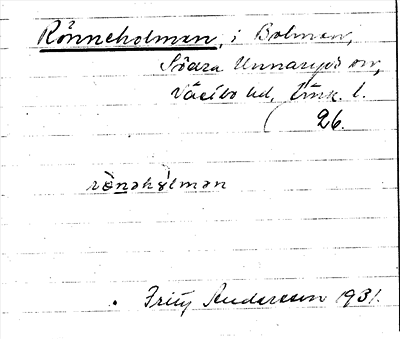 Rönneholmen, i Bolmen,
Södra Unnaryds sn,
Västbo hd, Jönk. l.
26.
rönəhólmən
Fritz Andersson 1931.